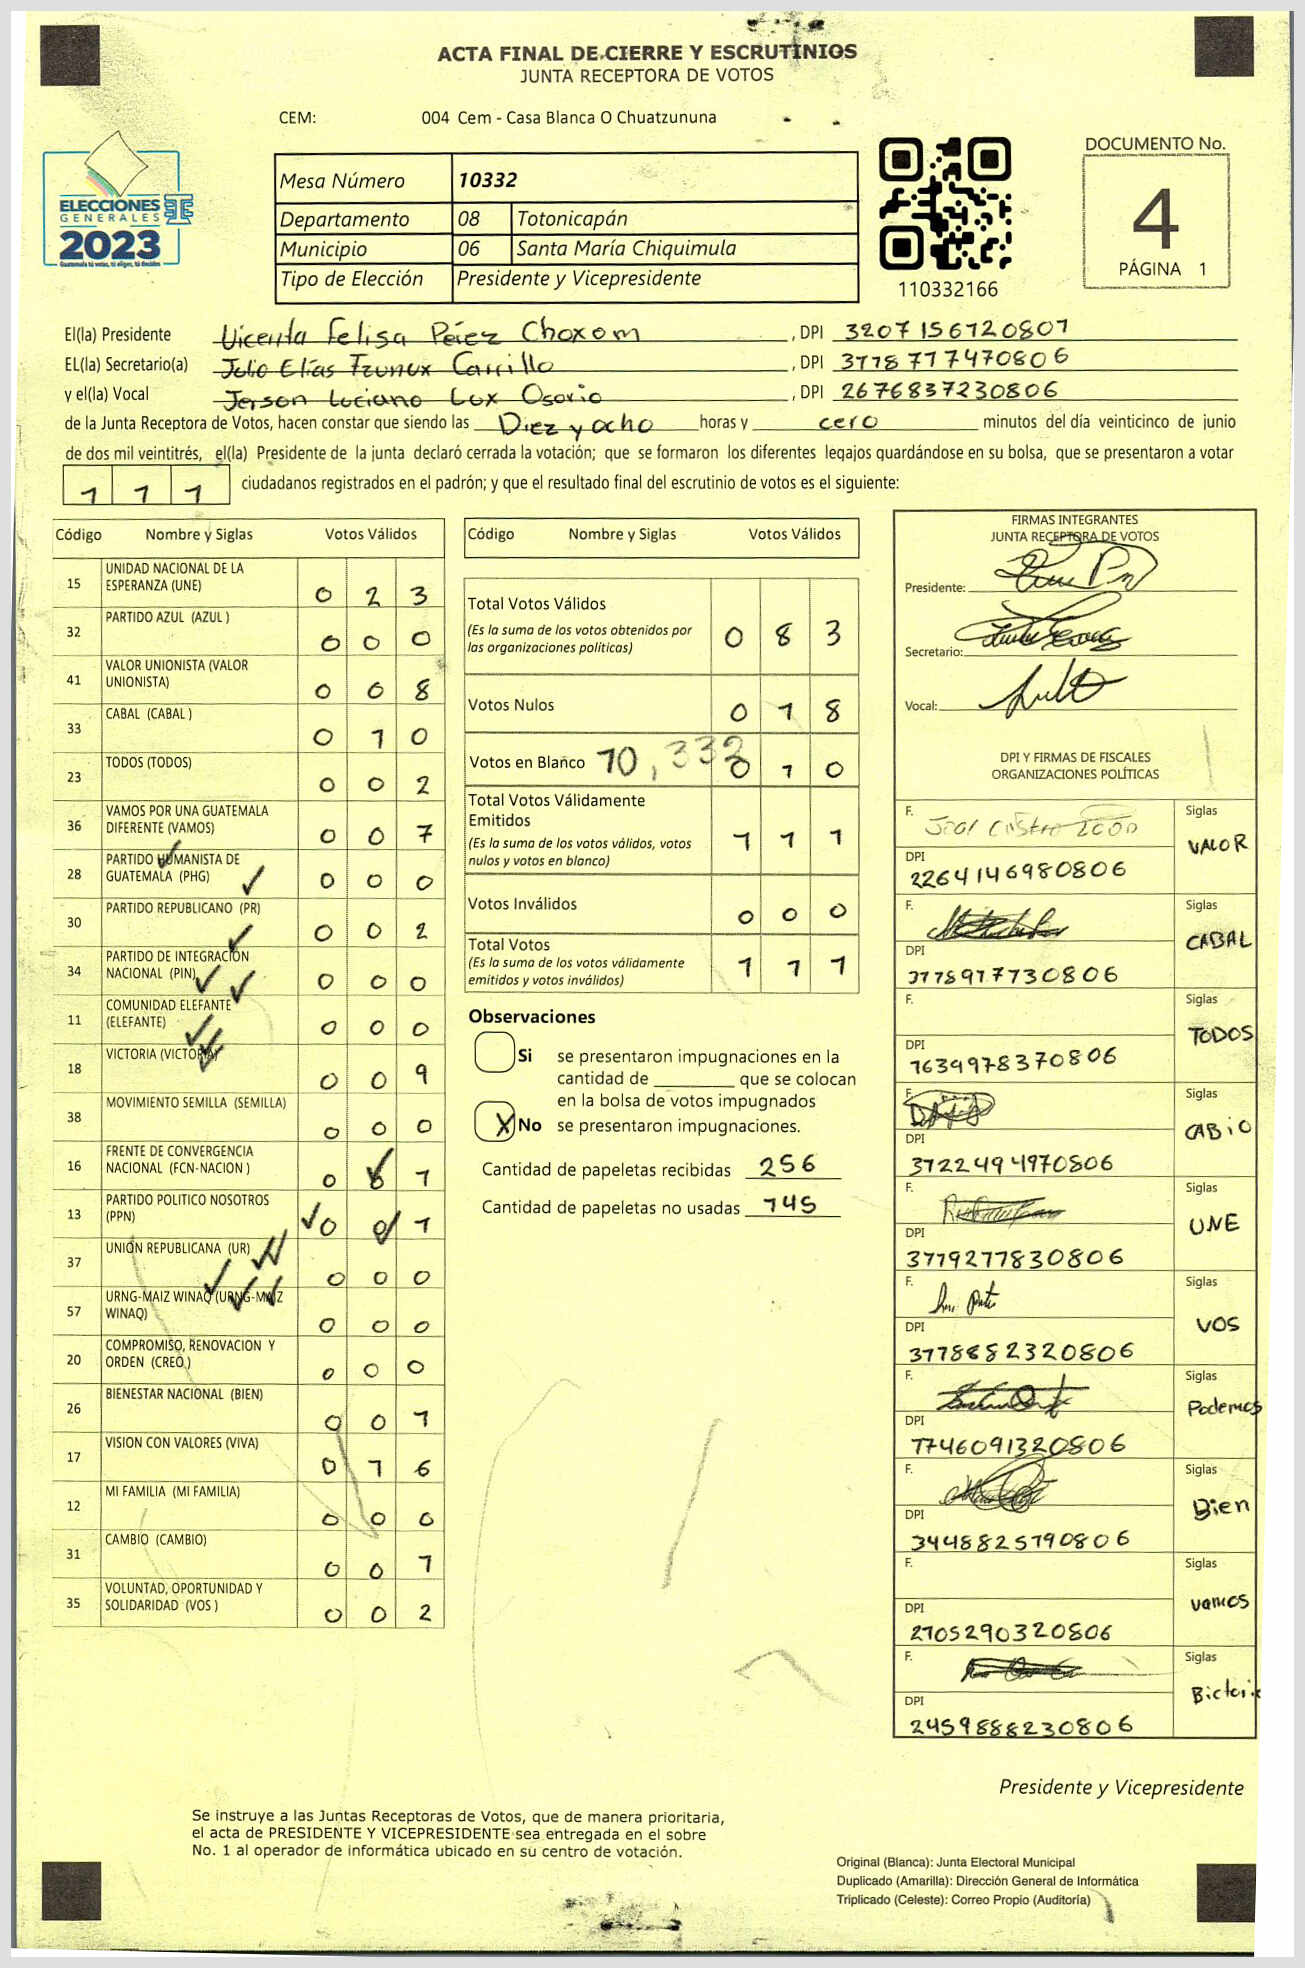 ACTA FINAL DE CIERRE Y ESCRUTINIOS
JUNTA RECEPTORA DE VOTOS
CEM: 004 Cem - Casa Blanca O Chuatzununa
DOCUMENTO No.
4
PÁGINA 1
ELECCIONES
GENERALES
2023
Guatemala tú votas, tú eliges, tú decides
Mesa Número 10332
Departamento 08 Totonicapán
Municipio 06 Santa María Chiquimula
Tipo de Elección Presidente y Vicepresidente
110332166
El(la) Presidente Vicenta Felisa Pérez Choxom, DPI 3207156120801
EL(la) Secretario(a) Julio Elías Carrillo, DPI 3778717470806
y el(la) Vocal Jerson Luciano Lux Osorio, DPI 2676837230806
de la Junta Receptora de Votos, hacen constar que siendo las Diez y ocho horas y cero minutos del día veinticinco de junio
de dos mil veintitrés, el(la) Presidente de la junta declaró cerrada la votación; que se formaron los diferentes legajos guardándose en su bolsa, que se presentaron a votar
1 1 1 ciudadanos registrados en el padrón; y que el resultado final del escrutinio de votos es el siguiente:
Código Nombre y Siglas Votos Válidos
15 UNIDAD NACIONAL DE LA ESPERANZA (UNE) 0 2 3
32 PARTIDO AZUL (AZUL ) 0 0 0
41 VALOR UNIONISTA (VALOR UNIONISTA) 0 0 8
33 CABAL (CABAL ) 0 1 0
23 TODOS (TODOS) 0 0 2
36 VAMOS POR UNA GUATEMALA DIFERENTE (VAMOS) 0 0 7
28 PARTIDO HUMANISTA DE GUATEMALA (PHG) 0 0 0
30 PARTIDO REPUBLICANO (PR) 0 0 2
34 PARTIDO DE INTEGRACIÓN NACIONAL (PIN) 0 0 0
11 COMUNIDAD ELEFANTE (ELEFANTE) 0 0 0
18 VICTORIA (VICTORIA) 0 0 9
38 MOVIMIENTO SEMILLA (SEMILLA) 0 0 0
16 FRENTE DE CONVERGENCIA NACIONAL (FCN-NACION ) 0 1
13 PARTIDO POLITICO NOSOTROS (PPN) 0 0 1
37 UNION REPUBLICANA (UR) 0 0 0
57 URNG-MAIZ WINAQ (URNG-MAIZ WINAQ) 0 0 0
20 COMPROMISO, RENOVACION Y ORDEN (CREO ) 0 0 0
26 BIENESTAR NACIONAL (BIEN) 0 0 1
17 VISION CON VALORES (VIVA) 0 1 6
12 MI FAMILIA (MI FAMILIA) 0 0 0
31 CAMBIO (CAMBIO) 0 0 1
35 VOLUNTAD, OPORTUNIDAD Y SOLIDARIDAD (VOS ) 0 0 2
Código Nombre y Siglas Votos Válidos
Total Votos Válidos 0 8 3
(Es la suma de los votos obtenidos por
las organizaciones políticas)
Votos Nulos 0 1 8
Votos en Blanco 10,332 0 1 0
Total Votos Válidamente
Emitidos 1 1 1
(Es la suma de los votos válidos, votos
nulos y votos en blanco)
Votos Inválidos 0 0 0
Total Votos 1 1 1
(Es la suma de los votos válidamente
emitidos y votos inválidos)
Observaciones
Si se presentaron impugnaciones en la
cantidad de ________ que se colocan
en la bolsa de votos impugnados
X No se presentaron impugnaciones.
Cantidad de papeletas recibidas 256
Cantidad de papeletas no usadas 145
FIRMAS INTEGRANTES
JUNTA RECEPTORA DE VOTOS
Presidente:
Secretario:
Vocal:
DPI Y FIRMAS DE FISCALES
ORGANIZACIONES POLÍTICAS
F. Siglas
VALOR
DPI
2264146980806
F. Siglas
CABAL
DPI
3778917730806
F. Siglas
TODOS
DPI
1634978370806
F. Siglas
CABIO
DPI
3722494970806
F. Siglas
UNE
DPI
3779277830806
F. Siglas
VOS
DPI
3778882320806
F. Siglas
Podemos
DPI
1746091320806
F. Siglas
Bien
DPI
3448825790806
F. Siglas
vamos
DPI
2705290320806
F. Siglas
Bictoria
DPI
2459888230806
Presidente y Vicepresidente
Se instruye a las Juntas Receptoras de Votos, que de manera prioritaria,
el acta de PRESIDENTE Y VICEPRESIDENTE sea entregada en el sobre
No. 1 al operador de informática ubicado en su centro de votación.
Original (Blanca): Junta Electoral Municipal
Duplicado (Amarilla): Dirección General de Informática
Triplicado (Celeste): Correo Propio (Auditoría)